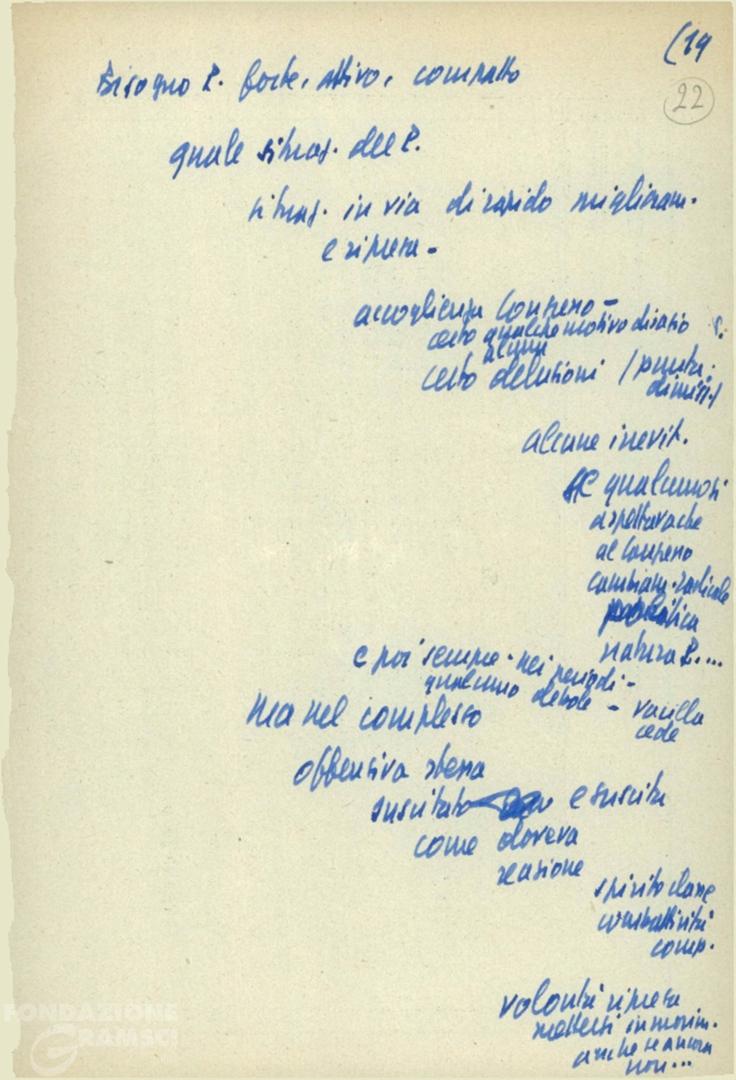 (19
22
Bisogno P. forte, attivo, compatto
quale situaz. del P.
situaz. in via di rapido miglioram.
e ripresa -
accoglienza Congresso -
certo qualche motivo disagio P.
alcune
certo delusioni / punta.
dimiss. /
alcune inevit.
se qualcuno si
aspettava che
al Congresso
cambiam. radicale
politica
natura P....
e poi sempre - nei periodi -
qualcuno debole - vacilla
cede
Ma nel complesso
offensiva stessa
suscitato e suscita
come doveva
reazione
spirito classe
combattività
comp.
volontà ripresa
mettersi in movim.
anche se ancora
non...
FONDAZIONE
GRAMSCI